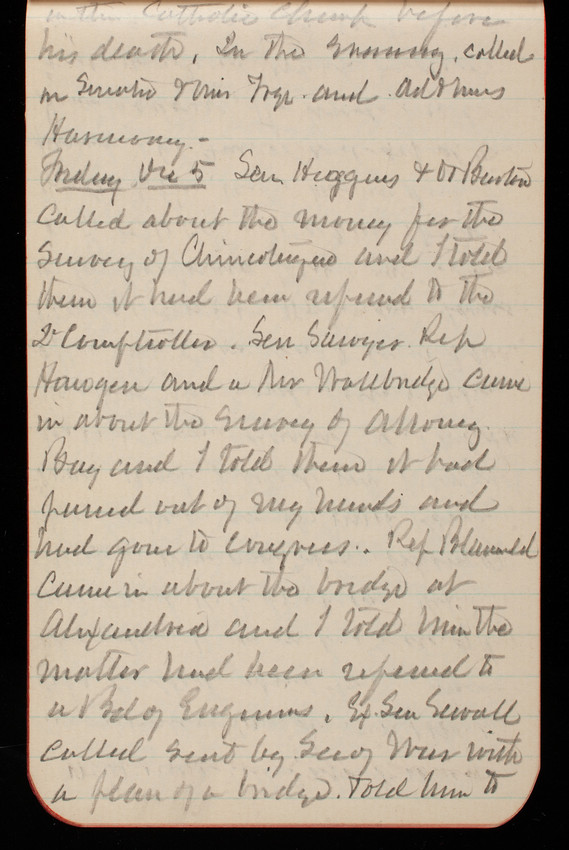 in the Catholic Church before
his death. In the evening, called
on Senator & Mrs Frye. and Ad & Mrs
Harmony.-
Friday Dec 5 Sen Higgins & Dr Burton
called about the money for the
survey of Chincoteague and I told
them it had been refered to the
2d Comptroller. Sen Sawyer. Rep
Haugen and a Mr Wallbridge came
in about the survey of
Bay and I told them it had
passed out of my hands and
had gone to Congress. Rep
came in about the bridge at
Alexandria and I told him the
matter had been refered to
a Bd of Engineers. Ex Sen Sewall
called sent by Sec of War with
a plan of a bridge. Told him to